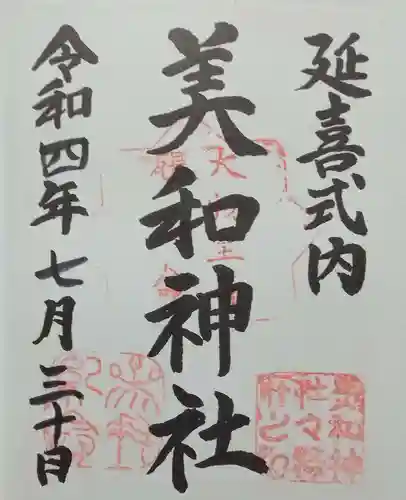 延喜式内
美和神社
令和四年七月三十日